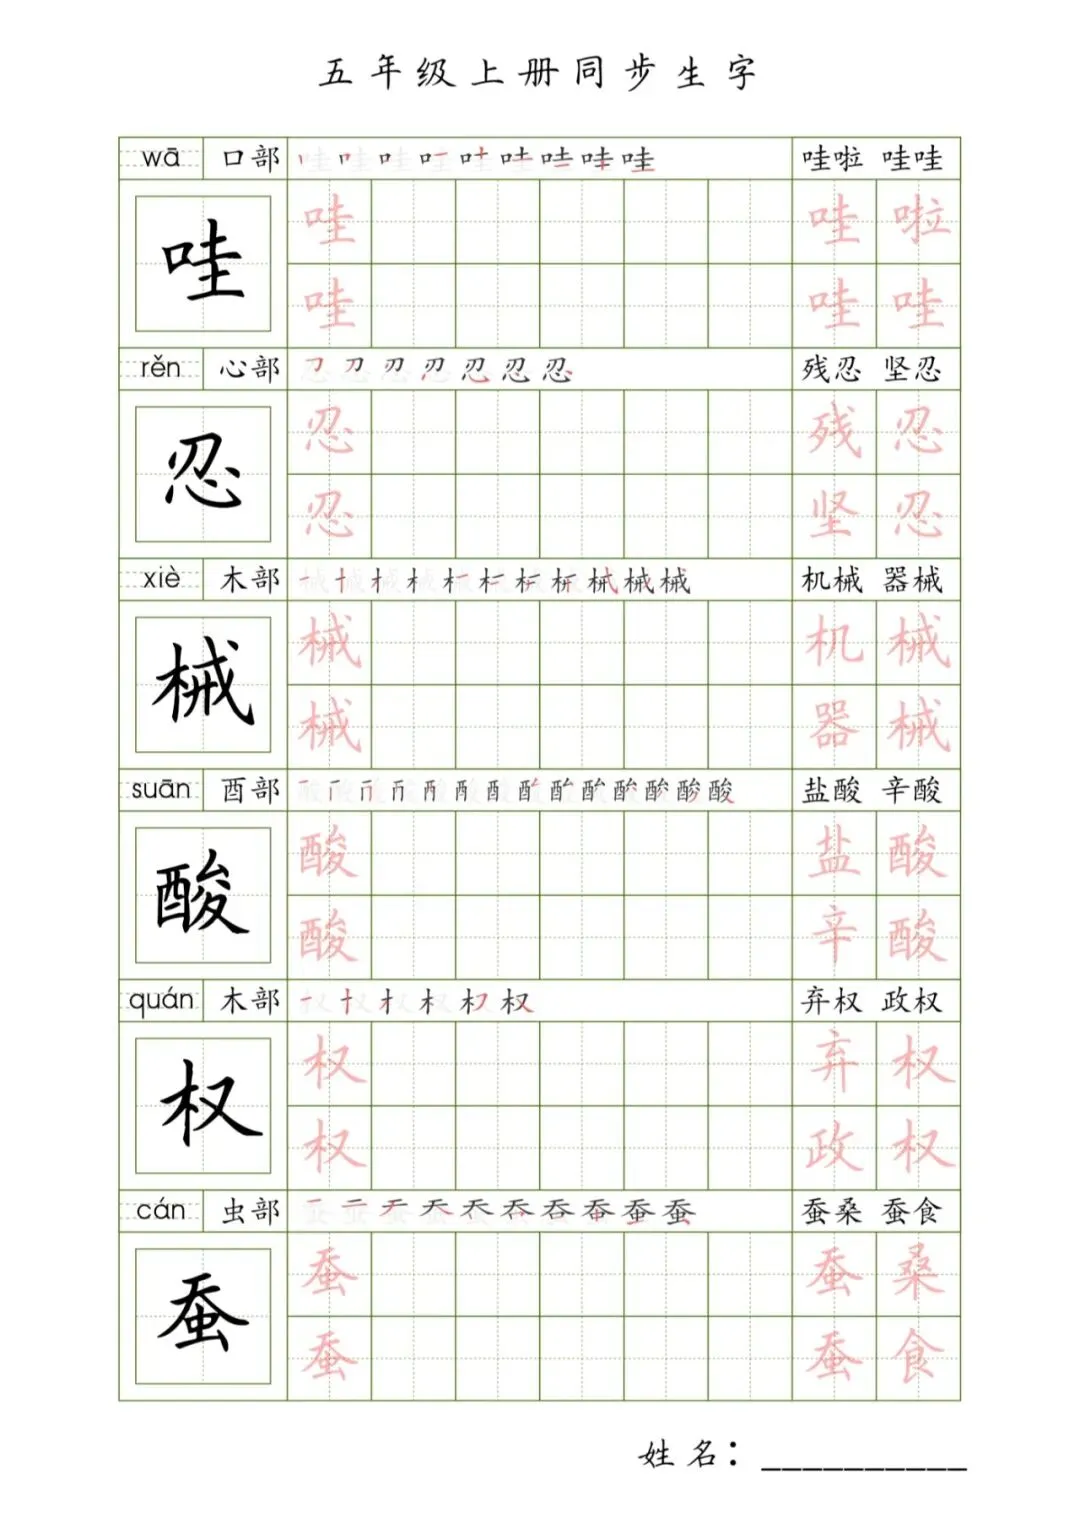 五年级上册同步生字
wā 口部 哇 哇啦 哇哇
哇 哇 哇 啦
哇 哇 哇
rěn 心部 忍 残忍 坚忍
忍 忍 残 忍
忍 坚 忍
xiè 木部 械 机械 器械
械 械 机 械
械 器 械
suān 酉部 酸 盐酸 辛酸
酸 酸 盐 酸
酸 辛 酸
quán 木部 权 弃权 政权
权 权 弃 权
权 政 权
cán 虫部 蚕 蚕桑 蚕食
蚕 蚕 蚕 桑
蚕 蚕 食
姓名：__________